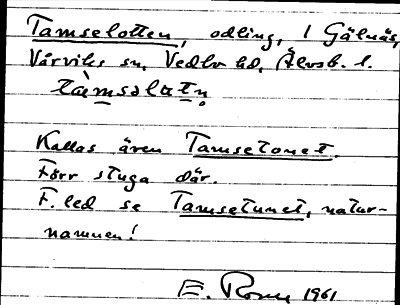 Tamselotten, odling, 1 Gälnäs,
Vårviks sn, Vedbo hd, Älvsb. l.
tàmsəlotn̥
Kallas även Tamsetonet.
Förr stuga där.
F. led se Tamsetunet, natur-
namnen!
E. Rosell 1961